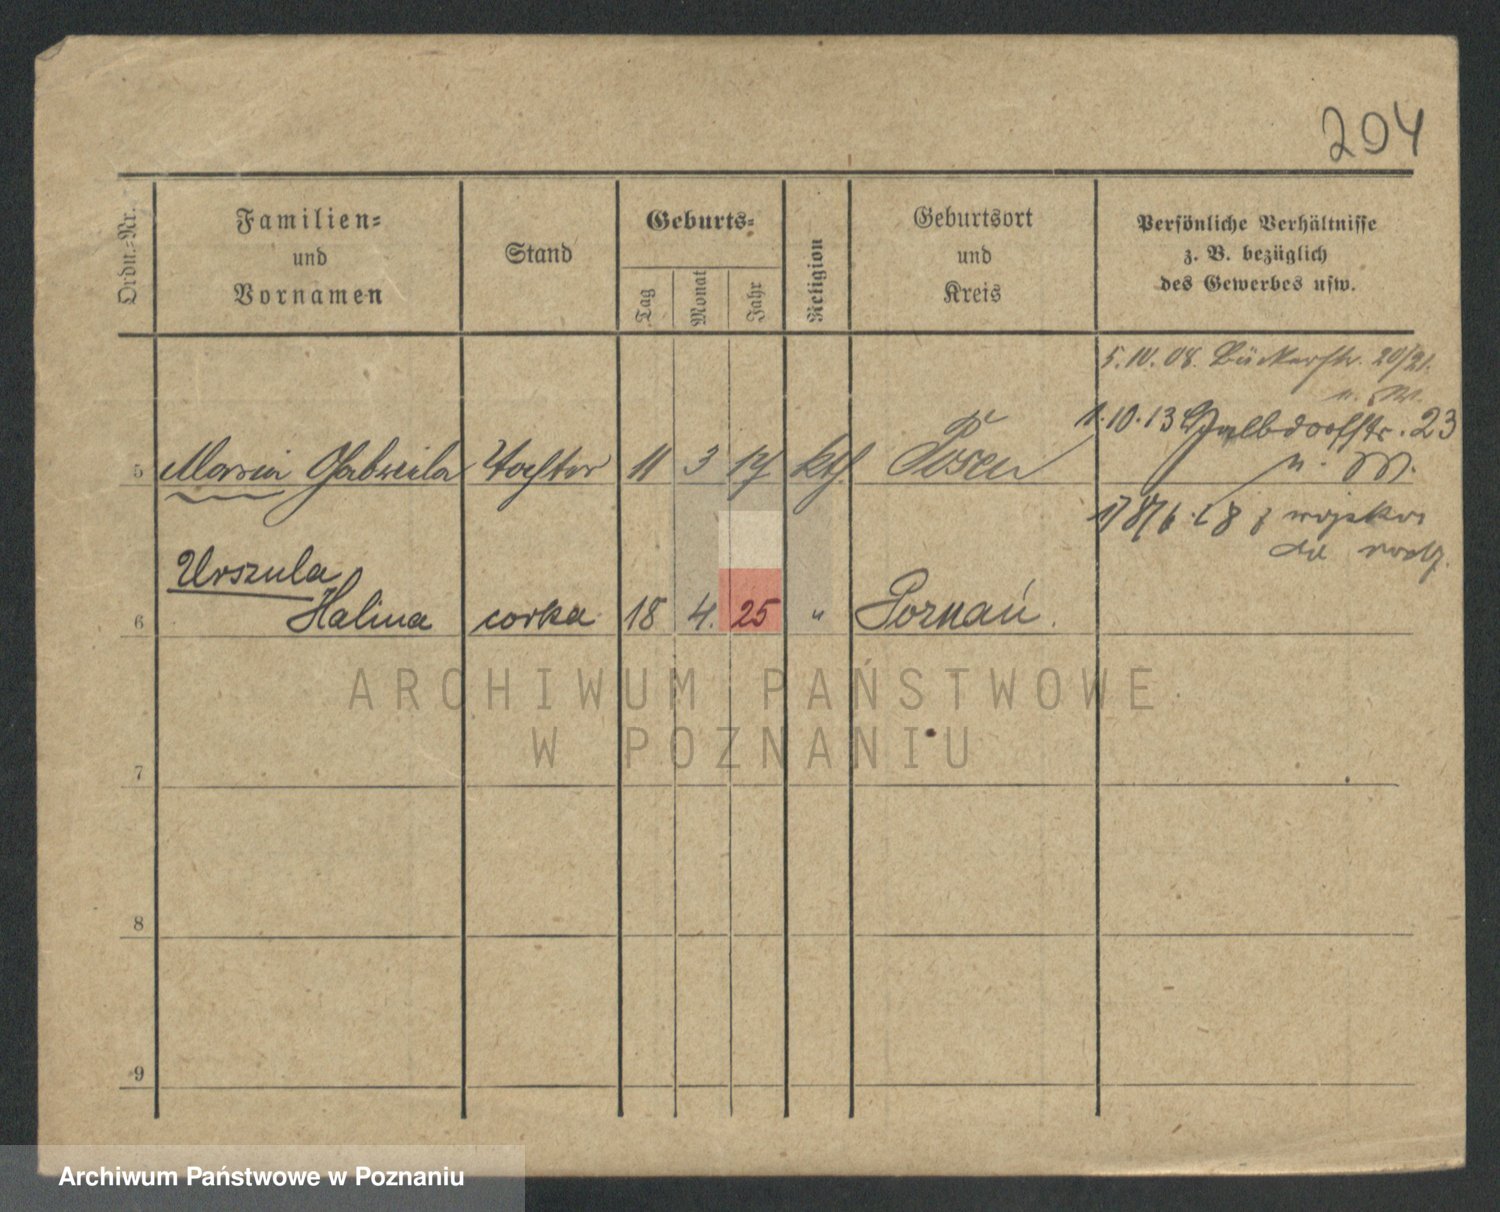 204
Ordn.-Nr.
Familien-
und
Vornamen
Stand
Geburts-
Tag
Monat
Jahr
Religion
Geburtsort
und
Kreis
Persönliche Verhältnisse
z. B. bezüglich
des Gewerbes usw.
5.10.08. Bäckerstr. 20/21.
1.10.13 23
u. M.
5 Maria Gabriela Tochter 11 3 kth. Posen
z wojska
Urszula
6 Halina corka 18 4. 25 " Poznań.
ARCHIWUM PAŃSTWOWE
W POZNANIU
7
8
9
Archiwum Państwowe w Poznaniu